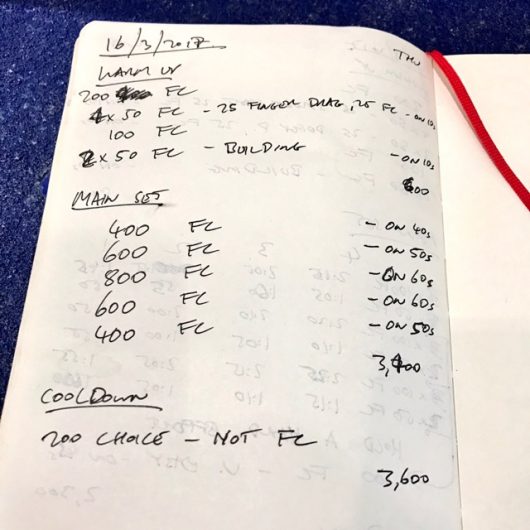 16/3/2017 THU
WARM UP
200 FC
4x 50 FC - 25 FINGER DRAG, 25 FC - ON 10s
100 FC
2x 50 FC - BUILDING - ON 10s
600
MAIN SET
400 FC - ON 40s
600 FC - ON 50s
800 FC - ON 60s
600 FC - ON 60s
400 FC - ON 50s
3,400
COOLDOWN
200 CHOICE - NOT FC
3,600